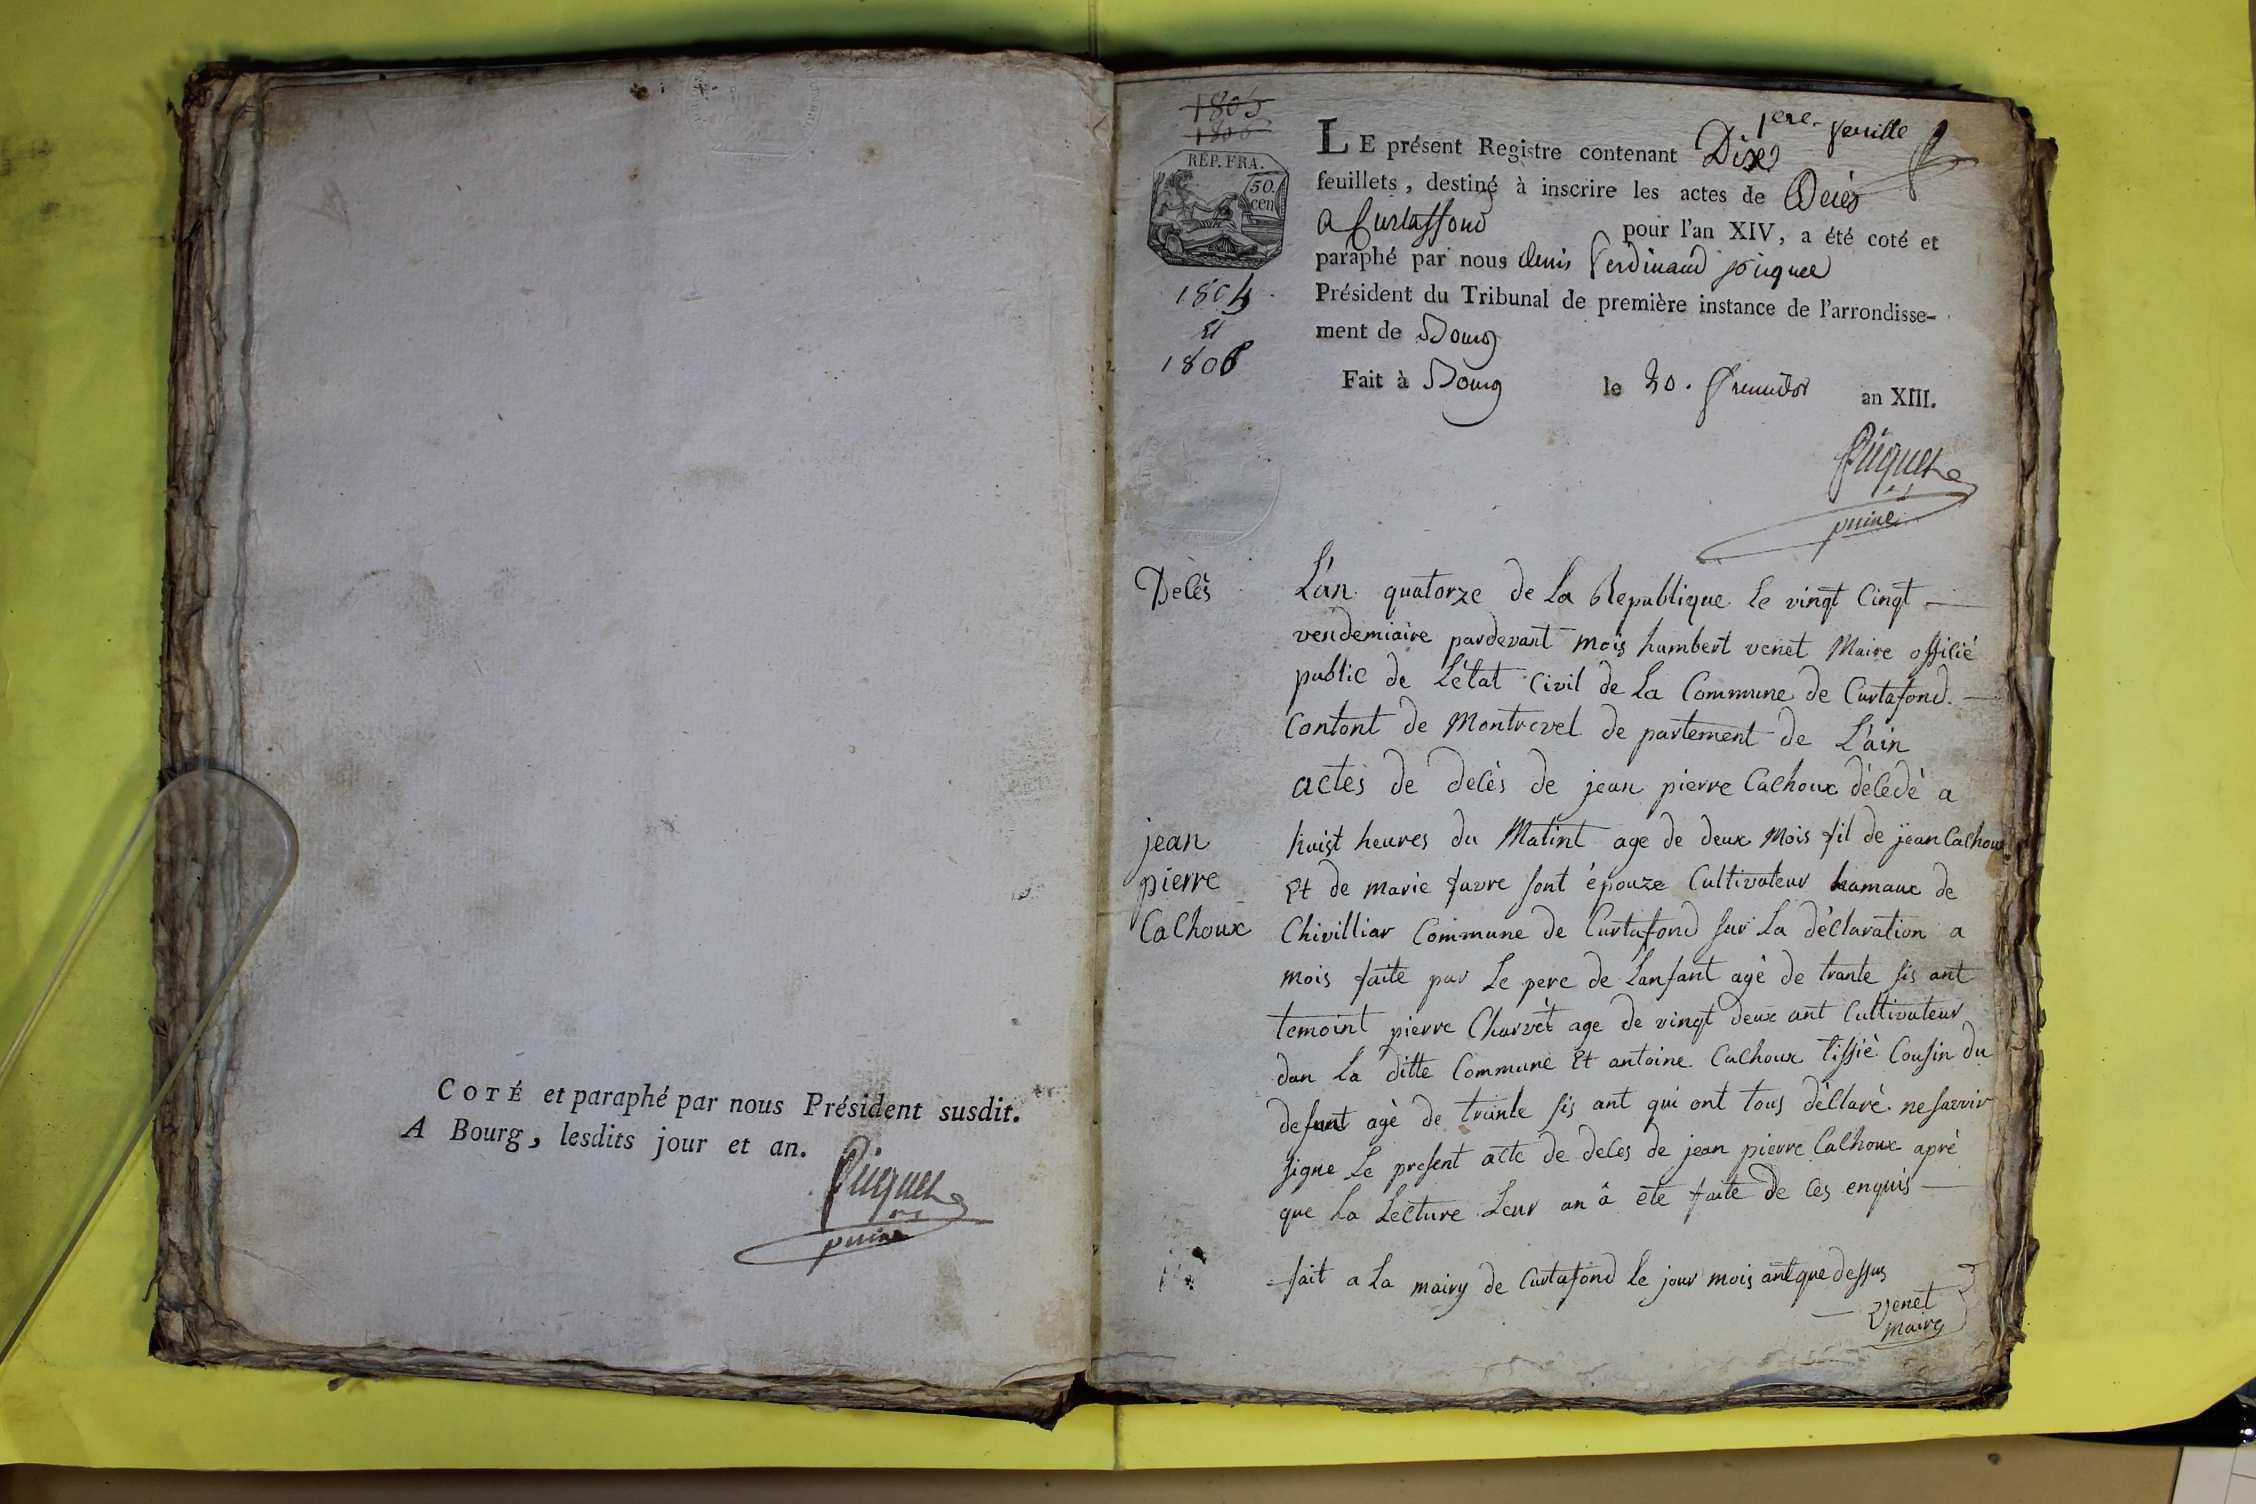 COTÉ et paraphé par nous Président susdit.
A Bourg, lesdits jour et an.
Picquet
1805
1806
RÉP. FRA.
50.
cen
1805
et
1806
1ere feuille
LE présent Registre contenant Dix
feuillets, destiné à inscrire les actes de Décès
a Curtaffond pour l'an XIV, a été coté et
paraphé par nous denis ferdinand picquet
Président du Tribunal de première instance de l'arrondisse-
ment de Bourg
Fait à Bourg le 20. fructidor an XIII.
Picquet
Decès
L'an quatorze de La Republique Le vingt Cinqt
vendemiaire pardevant mois humbert venet Maire offilié
public de L'état Civil de La Commune de Curtafond
Contont de Montrevel de partement de L'ain
actes de decès de jean pierre Cachoux décédé a
jean
pierre
Cachoux
huist heures du Matint age de deux Mois fil de jean Cachoux
Et de marie favre sont épouze Cultivateur hamaux de
Chivilliar Commune de Curtafond sur La déclaration a
mois faite par Le pere de Lanfant agé de trante sis ant
temoint pierre Charvet age de vingt deux ant Cultivateur
dan La ditte Commune Et antoine Cachoux tissié Cousin du
defunt agè de trante sis ant qui ont tous déclaré ne savoir
signe Le present acte de deces de jean pierre Cachoux aprè
que La Lecture Leur an â ete faite de Ces enquis
fait a La mairy de Curtafond Le jour mois ant que dessus
venet
maire